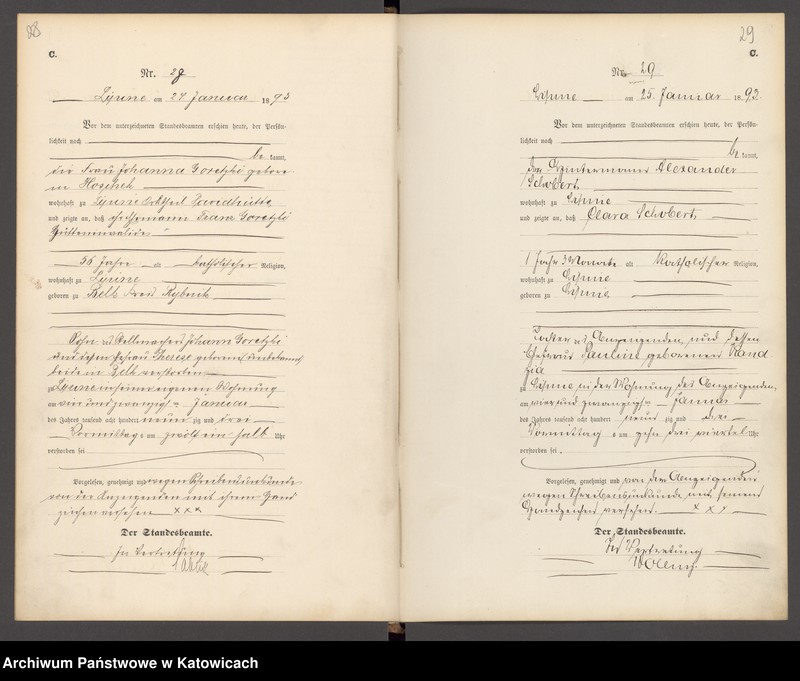 28
C.
Nr. 28
Lipine am 24 Januar 1893
Vor dem unterzeichneten Standesbeamten erschien heute, der Persön-
lichkeit nach
be kannt,
die Frau Johanna Goretzki gebore-
ne Hoschek
wohnhaft zu Lipine
und zeigte an, daß Ehemann Franz Goretzki
Hütteninvalide
56 Jahre alt katholischer Religion,
wohnhaft zu Lipine
geboren zu Belk Kreis Rybnik
Sohn des Stellmachers Johann Goretzki
und dessen Ehefrau Therese geborene unbekannt
beide in Belk verstorben
zu Lipine in seiner eigenen Wohnung
am vier und zwanzigsten Januar
des Jahres tausend acht hundert neun zig und drei
Vormittags um zwölf ein halb Uhr
verstorben sei
Vorgelesen, genehmigt und wegen Schreibensunkunde
von der Anzeigenden mit ihrem Hand
zeichen versehen xxx
Der Standesbeamte.
In Vertretung
29
C.
Nr. 29
Lipine am 25. Januar 1893.
Vor dem unterzeichneten Standesbeamten erschien heute, der Persön-
lichkeit nach
be kannt,
der Alexander
Schobert
wohnhaft zu Lipine
und zeigte an, daß Clara Schobert,
1 Jahr 3 Monate alt katholischer Religion,
wohnhaft zu Lipine
geboren zu Lipine
Tochter des Anzeigenden und dessen
Ehefrau Pauline geborenen
zu Lipine in der Wohnung des Anzeigenden,
am vier und zwanzigsten Januar
des Jahres tausend acht hundert neun zig und drei
Vormittag s um zehn drei viertel Uhr
verstorben sei.
Vorgelesen, genehmigt und von dem Anzeigenden
wegen Schreibensunkunde mit seinem
Handzeichen versehen. x x x
Der Standesbeamte.
In Vertretung
Archiwum Państwowe w Katowicach